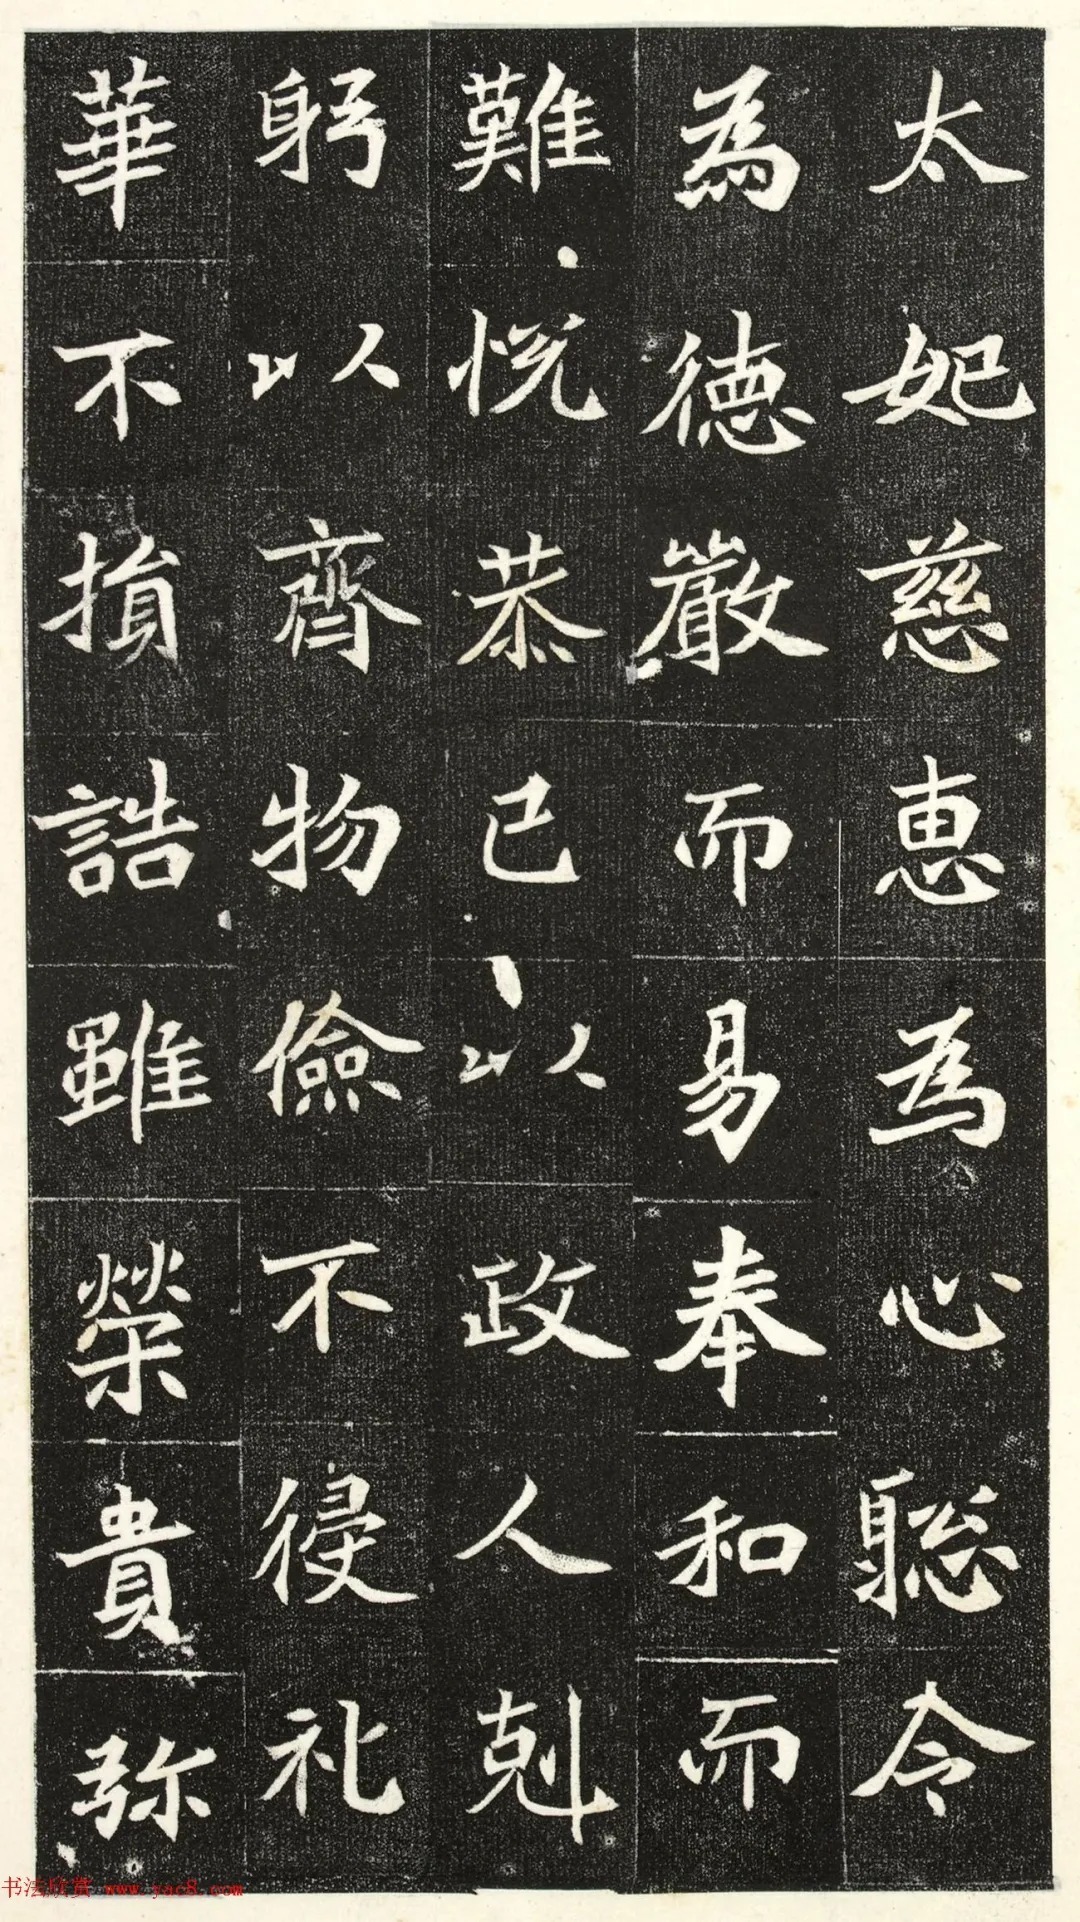 太妃慈恵為心聡令
為徳嚴而易奉和而
難悦恭己以政人剋
躬以齊物儉不侵礼
華不損誥雖榮貴弥
书法欣赏 www.yac8.com